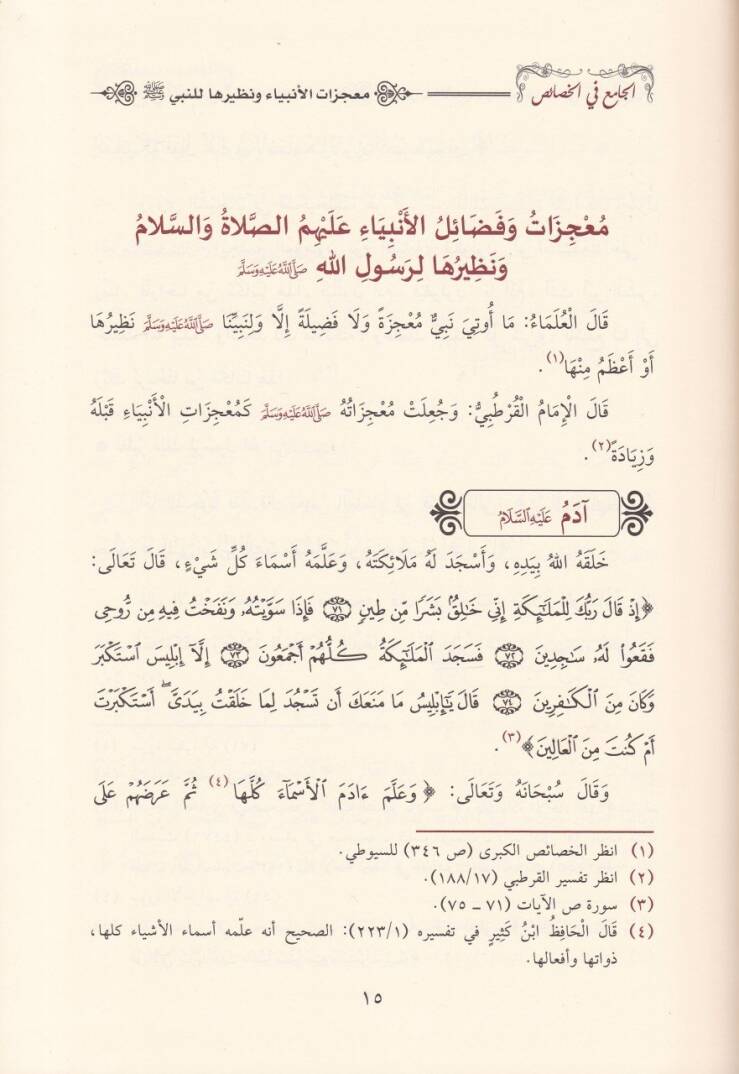 الجامع في الخصائص
معجزات الأنبياء ونظيرها للنبي ﷺ
مُعْجِزَاتُ وَفَضَائِلُ الأَنْبِيَاءِ عَلَيْهِمُ الصَّلَاةُ وَالسَّلَامُ
وَنَظِيرُهَا لِرَسُولِ اللهِ صَلَّى اللَّهُ عَلَيْهِ وَسَلَّمَ
قَالَ الْعُلَمَاءُ: مَا أُوتِيَ نَبِيٌّ مُعْجِزَةً وَلَا فَضِيلَةً إِلَّا وَلِنَبِيِّنَا صَلَّى اللَّهُ عَلَيْهِ وَسَلَّمَ نَظِيرُهَا
أَوْ أَعْظَمُ مِنْهَا(١).
قَالَ الْإِمَامُ الْقُرْطُبِيُّ: وَجُعِلَتْ مُعْجِزَاتُهُ صَلَّى اللَّهُ عَلَيْهِ وَسَلَّمَ كَمُعْجِزَاتِ الْأَنْبِيَاءِ قَبْلَهُ
وَزِيَادَةً(٢).
آدَمُ عَلَيْهِ السَّلَامُ
خَلَقَهُ اللهُ بِيَدِهِ، وَأَسْجَدَ لَهُ مَلَائِكَتَهُ، وَعَلَّمَهُ أَسْمَاءَ كُلِّ شَيْءٍ، قَالَ تَعَالَى:
﴿إِذْ قَالَ رَبُّكَ لِلْمَلَٰٓئِكَةِ إِنِّي خَٰلِقُۢ بَشَرٗا مِّن طِينٖ ٧١ فَإِذَا سَوَّيۡتُهُۥ وَنَفَخۡتُ فِيهِ مِن رُّوحِي
فَقَعُواْ لَهُۥ سَٰجِدِينَ ٧٢ فَسَجَدَ ٱلۡمَلَٰٓئِكَةُ كُلُّهُمۡ أَجۡمَعُونَ ٧٣ إِلَّآ إِبۡلِيسَ ٱسۡتَكۡبَرَ
وَكَانَ مِنَ ٱلۡكَٰفِرِينَ ٧٤ قَالَ يَٰٓإِبۡلِيسُ مَا مَنَعَكَ أَن تَسۡجُدَ لِمَا خَلَقۡتُ بِيَدَيَّۖ أَسۡتَكۡبَرۡتَ
أَمۡ كُنتَ مِنَ ٱلۡعَالِينَ﴾(٣).
وَقَالَ سُبْحَانَهُ وَتَعَالَى: ﴿ وَعَلَّمَ ءَادَمَ ٱلۡأَسۡمَآءَ كُلَّهَا(٤) ثُمَّ عَرَضَهُمۡ عَلَى
(١) انظر الخصائص الكبرى (ص ٣٤٦) للسيوطي.
(٢) انظر تفسير القرطبي (١٨٨/١٧).
(٣) سورة ص الآيات (٧١ – ٧٥).
(٤) قَالَ الْحَافِظُ ابْنُ كَثِيرٍ في تفسيره (٢٢٣/١): الصحيح أنه علّمه أسماء الأشياء كلها،
ذواتها وأفعالها.
١٥